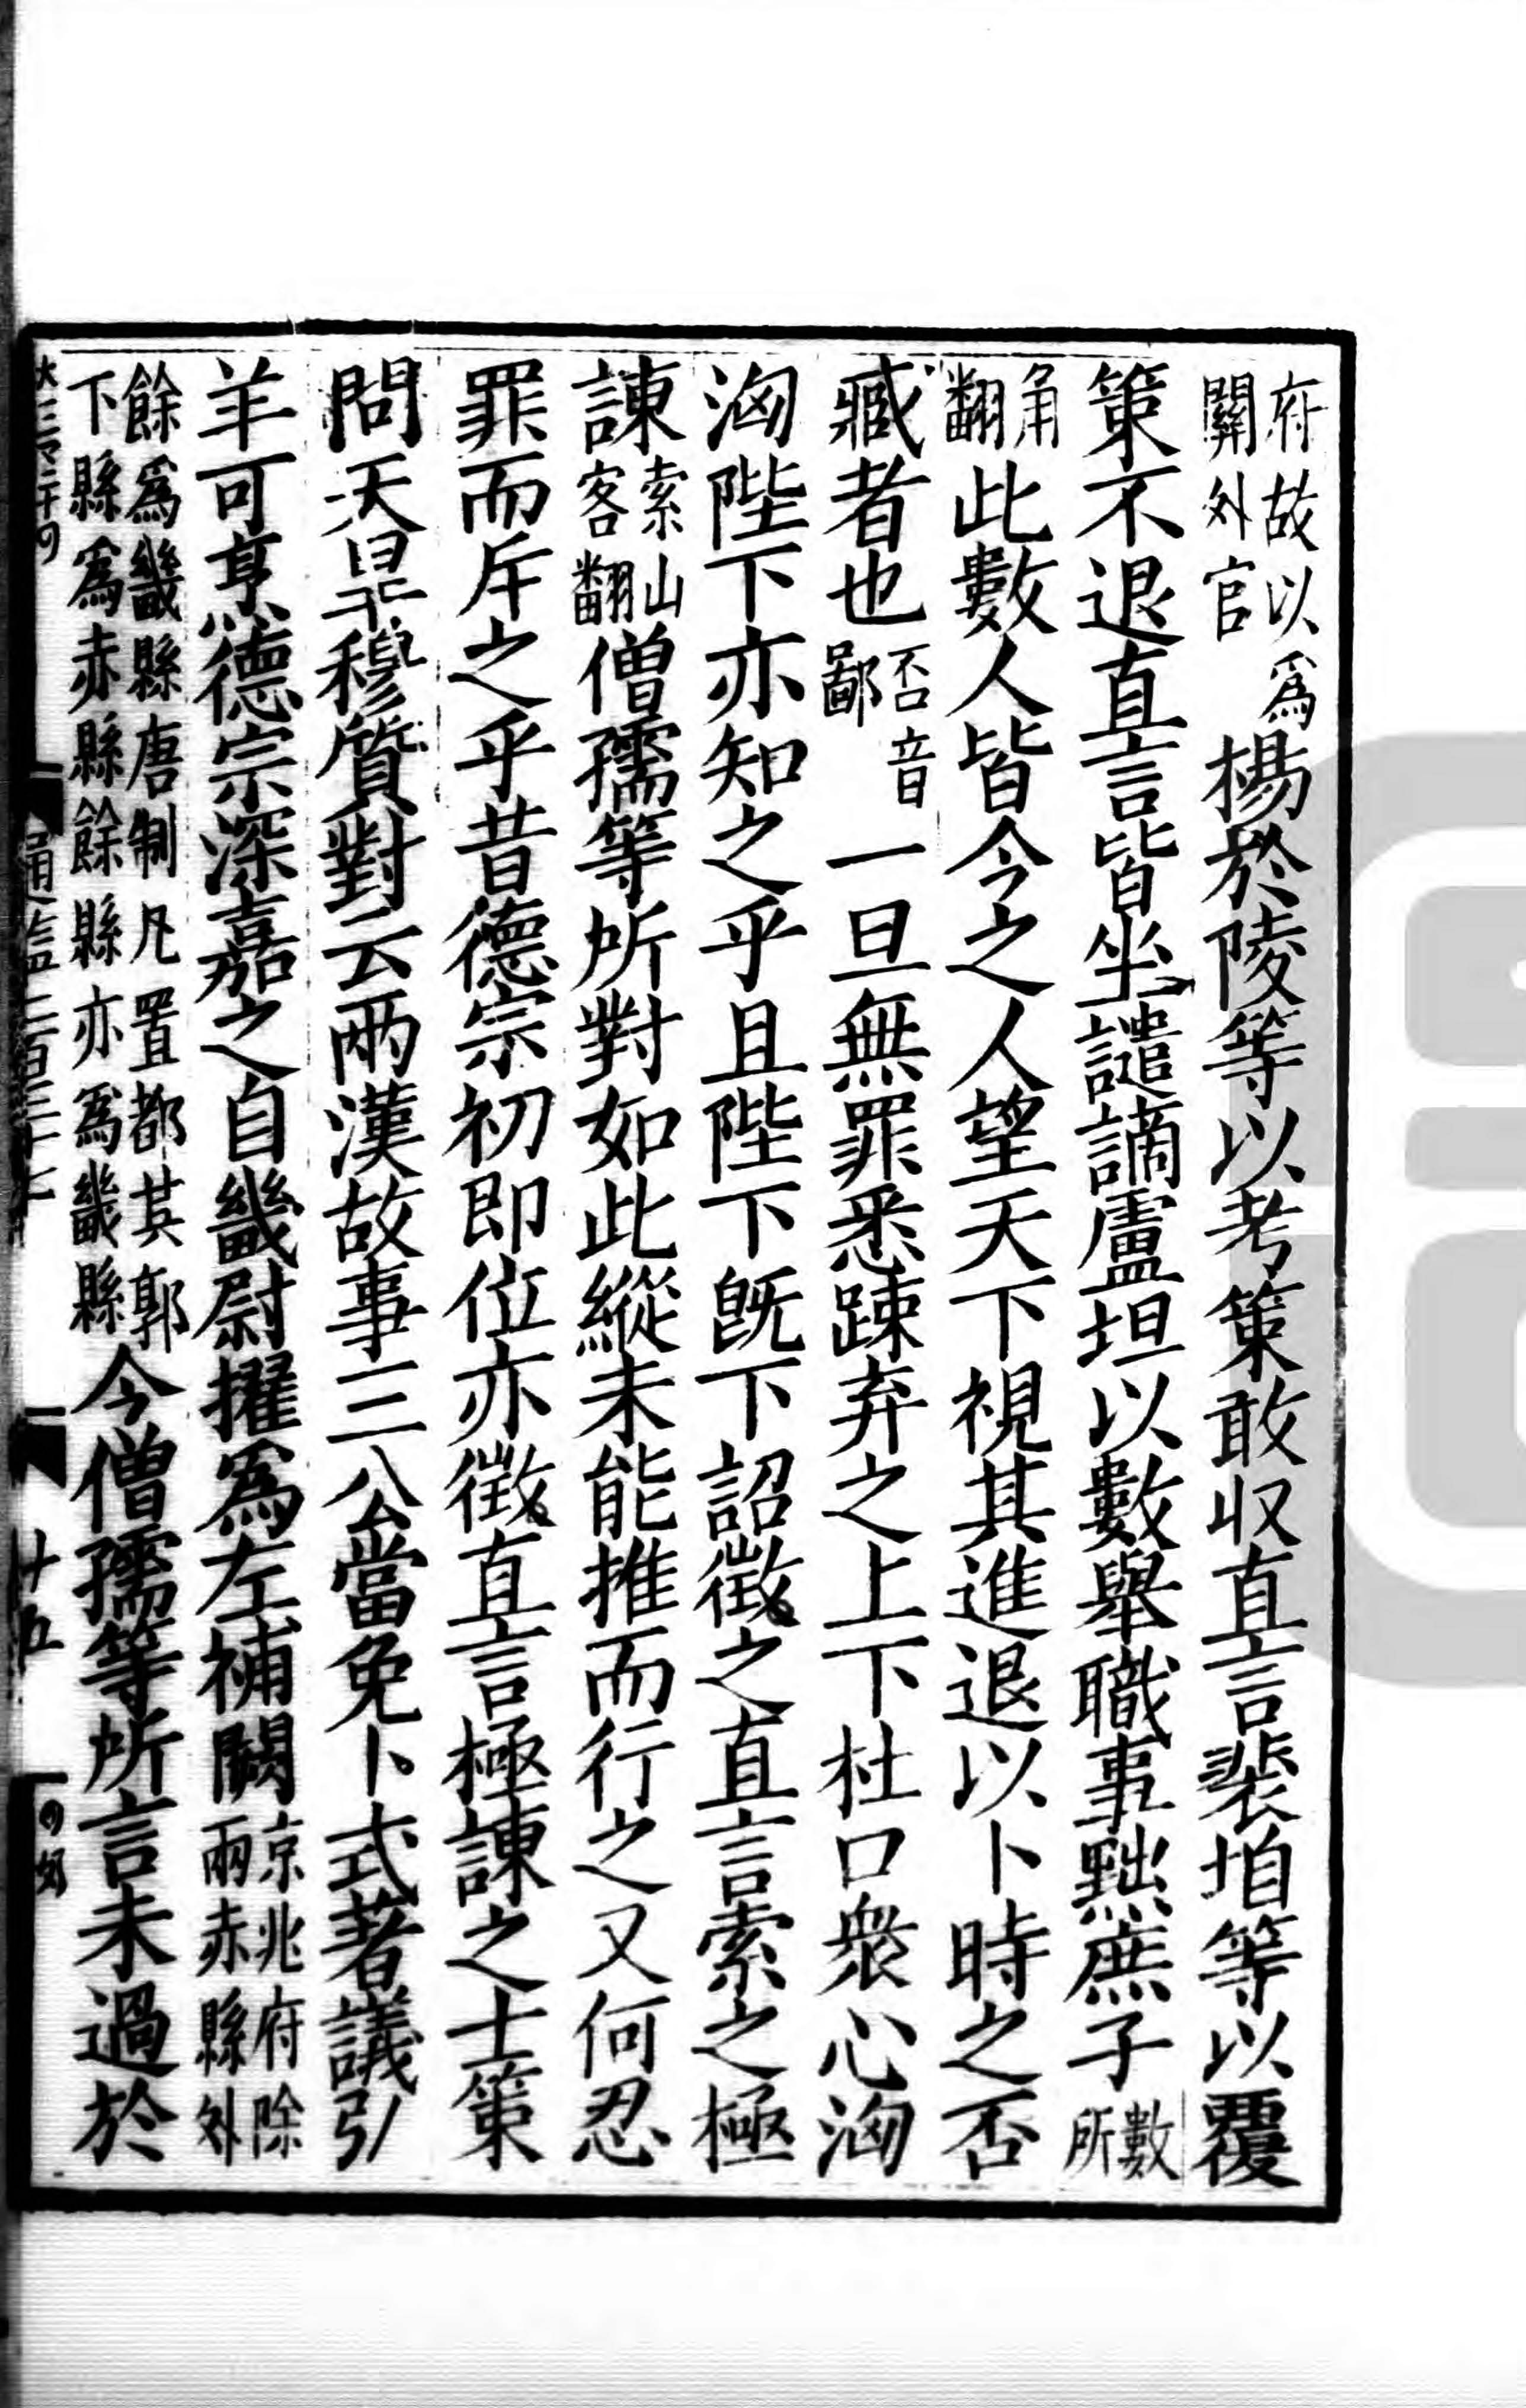 府故以爲關外官楊於陵等以考策敢収直言裴垍等以覆
策不退直言皆坐譴謫盧坦以數舉職事黜庶子數所
角翻此數人皆今之人望天下視其進退以卜時之否
臧者也否音鄙一旦無罪悉踈弃之上下杜口衆心洶
洶陛下亦知之乎且陛下旣下詔徵之直言索之極
諫索山客翻僧孺等所對如此縱未能推而行之又何忍
罪而斥之乎昔德宗初即位亦徵直言極諫之士策
問天旱穆質對云兩漢故事三公當免卜式著議弘
羊可烹德宗深嘉之自畿尉擢爲左補闕京兆府除兩赤縣外
餘爲畿縣唐制凡置都其郭下縣爲赤縣餘縣亦爲畿縣今僧孺等所言未過於
通鑑二百三十七
廿五